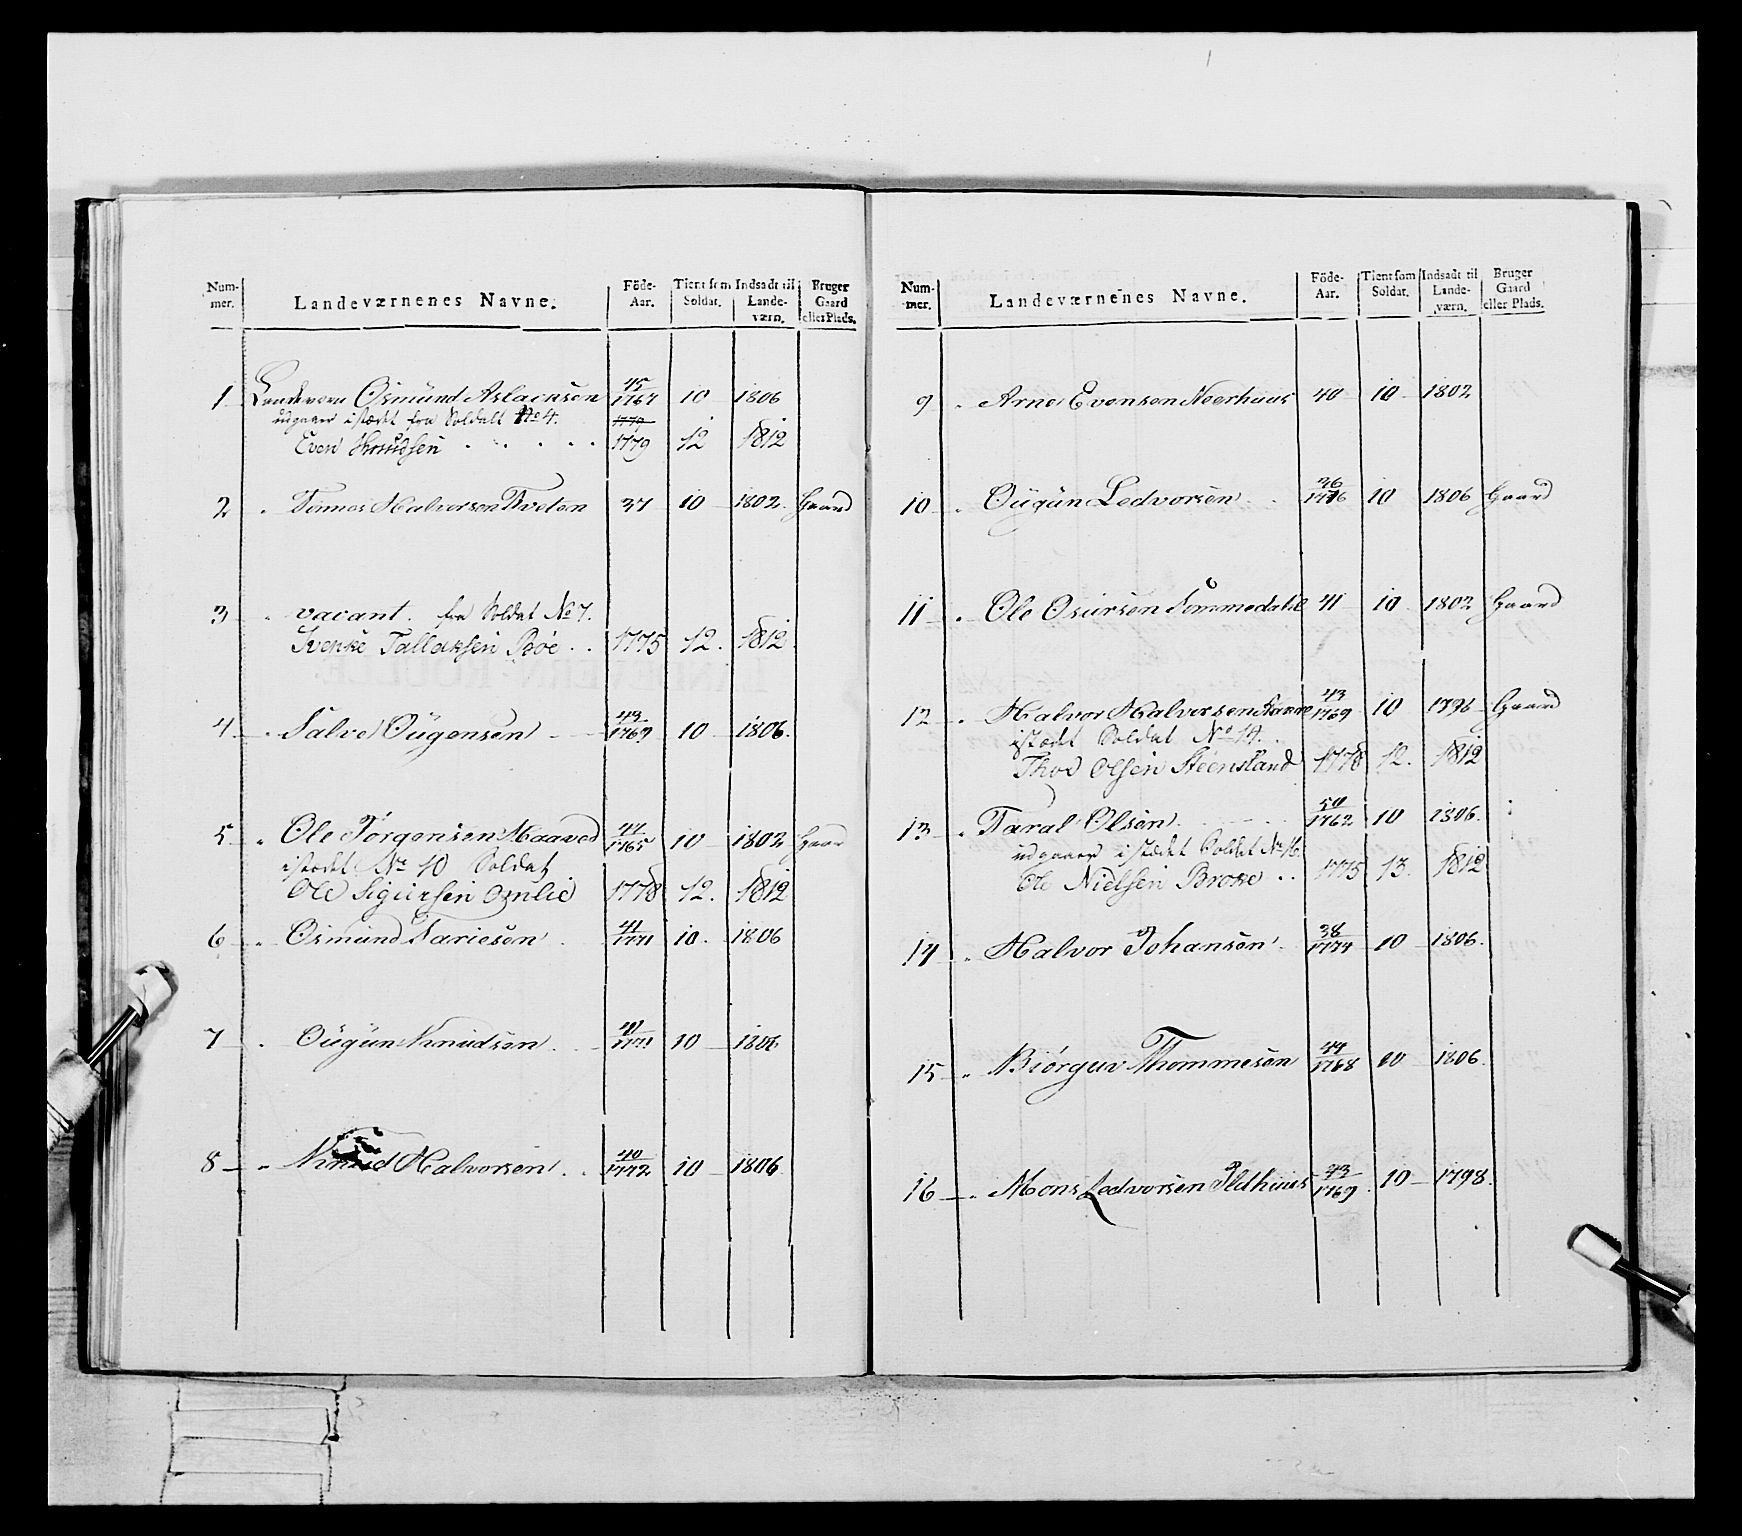 Num-
mer.
Landeværnenes Navne.
Föde-
Aar.
Tient som
Soldat.
Indsadt til
Lande-
værn.
Bruger
Gaard
eller Plads.
1 Landevern Osmund Aslacksen 45/1767 10 1806
udgaaer istædet fra Soldatt No 4. 1779
Even Knudsen 1779 12 1812
2 " Tomas Halvorsen Tveten 37 10 1802 Gaard
3 " vacant. fra Soldat No 7.
Svenke Tallaksen Böe 1775 12. 1812
4 " Salve Ougensen 43/1769 10 1806.
5 " Ole Jörgensen Haaved 47/1765 10 1802 Gaar
istædet No 10 Soldat
Ole Sigursen Omlie 1778 12. 1812
6 " Osmund Tariesen 41/1771 10. 1806
7 " Ougun Knudsen 41/1771 10 1806
8 " Knud Halvorsen 40/1772 10 1806
Num-
mer.
Landeværnenes Navne.
Föde-
Aar.
Tient som
Soldat.
Indsadt til
Lande-
værn.
Bruger
Gaard
eller Plads.
9 " Arne Evensen Neerhuus 40 10 1802
10 " Ougun Ledvorsen 36/1776 10 1806 Gaard
11 " Ole Osursen Tommedahl 41 10 1802 Gaard
12 " Halvor Halvorsen 43/1769 10 1796 Gaard
istædet Soldat No 14.
Thor Olsen Steensland 1778 12. 1812
13 " Taral Olsen 50/1762 10 1806.
udgaaer istædet Soldat No 16.
Ole Nielsen Broke 1775 13. 1812
14 " Halvor Johansen 38/1774 10 1806.
15 " Biörguv Thommesen 44/1768 10 1806
16 " Mons Ledvorsen Ildhuus 43/1769. 10 1798.